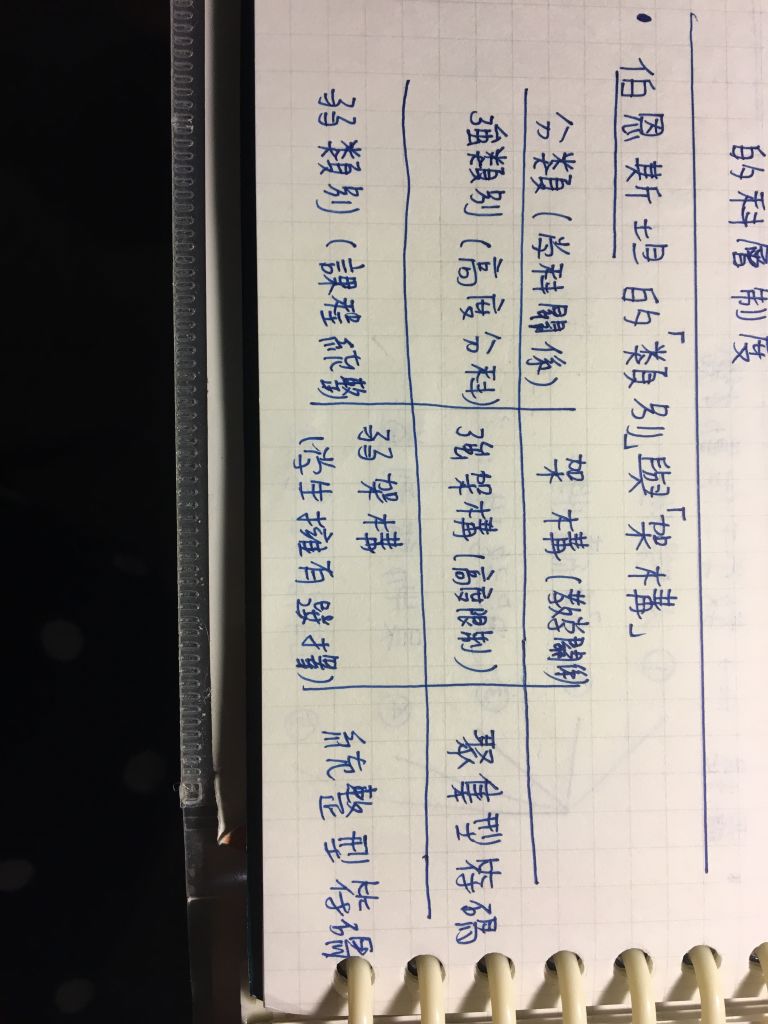 的科層制度
• 伯恩斯坦的「類別」與「架構」
分類(学科關係) 架構(教学關係)
強類別(高度分科) 強架構(高度限制) 聚集型符碼
弱類別(課程統整) 弱架構 統整型符碼
(学生擁有發揮)